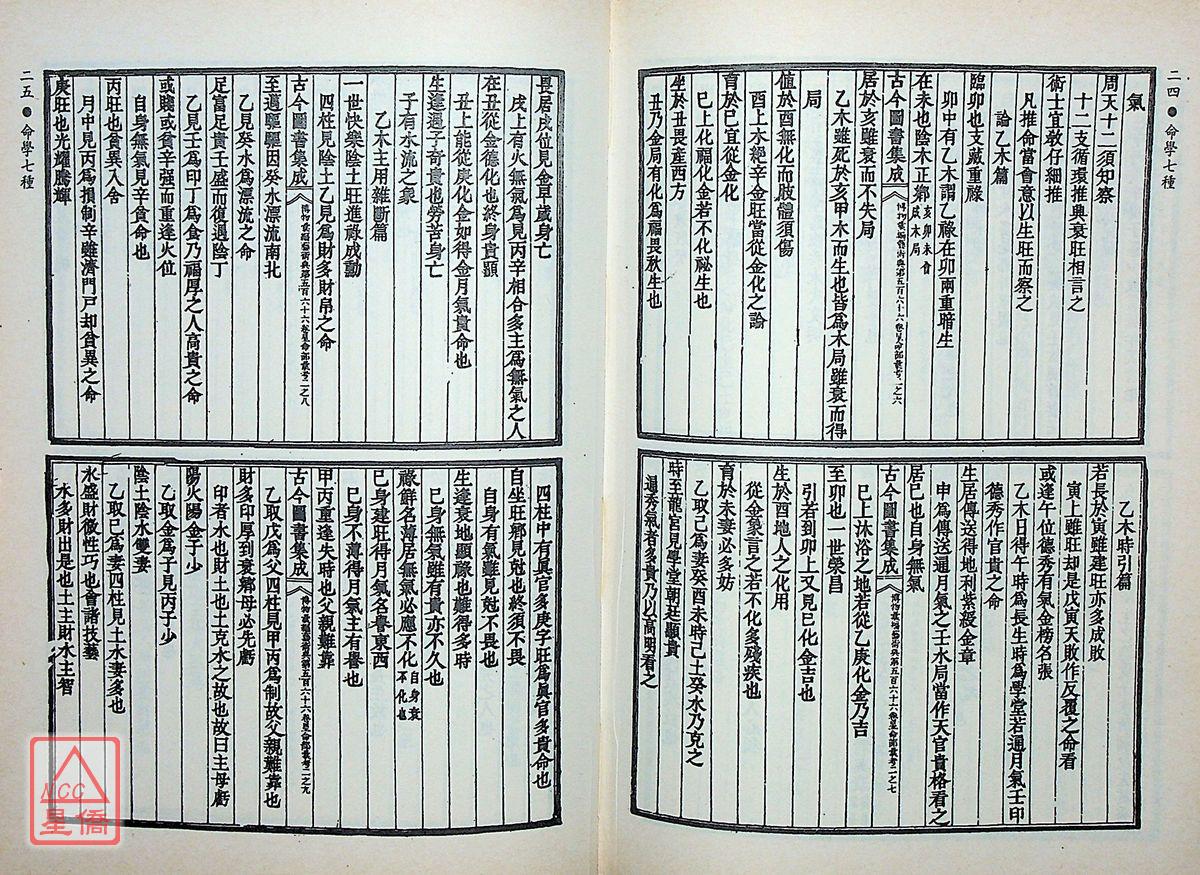 二四 ● 命學七種
氣
周天十二須知察
十二支循環推與衰旺相言之
術士宜敢仔細推
凡推命當會意以生旺而察之
論乙木篇
臨卯也支藏重祿
卯中有乙木謂乙祿在卯兩重暗生
在未也陰木正鄉亥卯未會成木局
古今圖書集成
居於亥雖衰而不失局
乙木雖死於亥甲木而生也皆爲木局雖衰而得
局
値於酉無化而肢體須傷
酉上木絕辛金旺當從金化之論
育於巳宜從金化
巳上化福化金若不化祕生也
坐於丑畏產西方
丑乃金局有化爲福畏敘生也
乙木時引篇
若長於寅雖建旺亦多成敗
寅上雖旺却是戊寅天敗作反覆之命看
或逢午位德秀有氣金榜名張
乙木日得午時爲長生時爲學堂若通月氣壬印
德秀作官貴之命
生居傳送得地利紫綬金章
申爲傳送通月氣之壬水局當作天官貴格看之
居巳也自身無氣
古今圖書集成
巳上沐浴之地若從乙庚化金乃吉
至卯也一世榮昌
引若到卯上又見巳化金吉也
生於酉地人之化用
從金象言之若不化多殘疾也
育於未妻必多妨
乙取己爲妻癸酉未時己土癸水乃克之
時至龍宮見學堂朝廷顯貴
遇秀氣者多貴乃以高明看之
二五 ● 命學七種
畏居庚位見金早歲身亡
戌上有火無氣爲見丙辛相合多主爲無氣之人
在丑從金德化也終身貴顯
丑上能從庚化金如得金月氣貴命也
生逢過子奇貴也勞苦身亡
子有水流之象
乙木主用雜斷篇
一世快樂陰土旺進祿成勳
四柱見陰土乙見爲財多財帛之命
古今圖書集成
至遇驅驅因癸水漂流南北
乙見癸水爲漂流之命
足富足貴壬盛而復遇陰丁
乙見壬爲印丁爲食乃福厚之人高貴之命
或賤或貧辛強而重逢火位
自身無氣見辛貧命也
丙旺也貧異入舍
月中見丙爲損制辛雖濟門戶却貧異之命
庚旺也光耀騰輝
四柱中有眞官多庚字旺爲眞官多貴命也
自坐旺鄉見尅也終須不畏
自身有氣雖見尅不畏也
生逢衰地顯祿也難得多時
巳身無氣雖有貴亦不久也
祿鮮名薄居無氣必應不化自身衰不化也
巳身建旺得月氣名譽東西
巳身不薄得月氣主有譽也
甲丙重逢失時也父親難靠
古今圖書集成
乙取戊爲父四柱見甲丙爲制故父親難靠也
財多印厚到衰鄉母必先虧
印者水也財土也土克水之故也故曰主母虧
陽火陽金子少
乙取金爲子見丙子少
陰土陰水雙妻
乙取己爲妻四柱見土水妻多也
水盛財微性巧也會諸技藝
水多財出是也土主財水主智
NCC
星僑